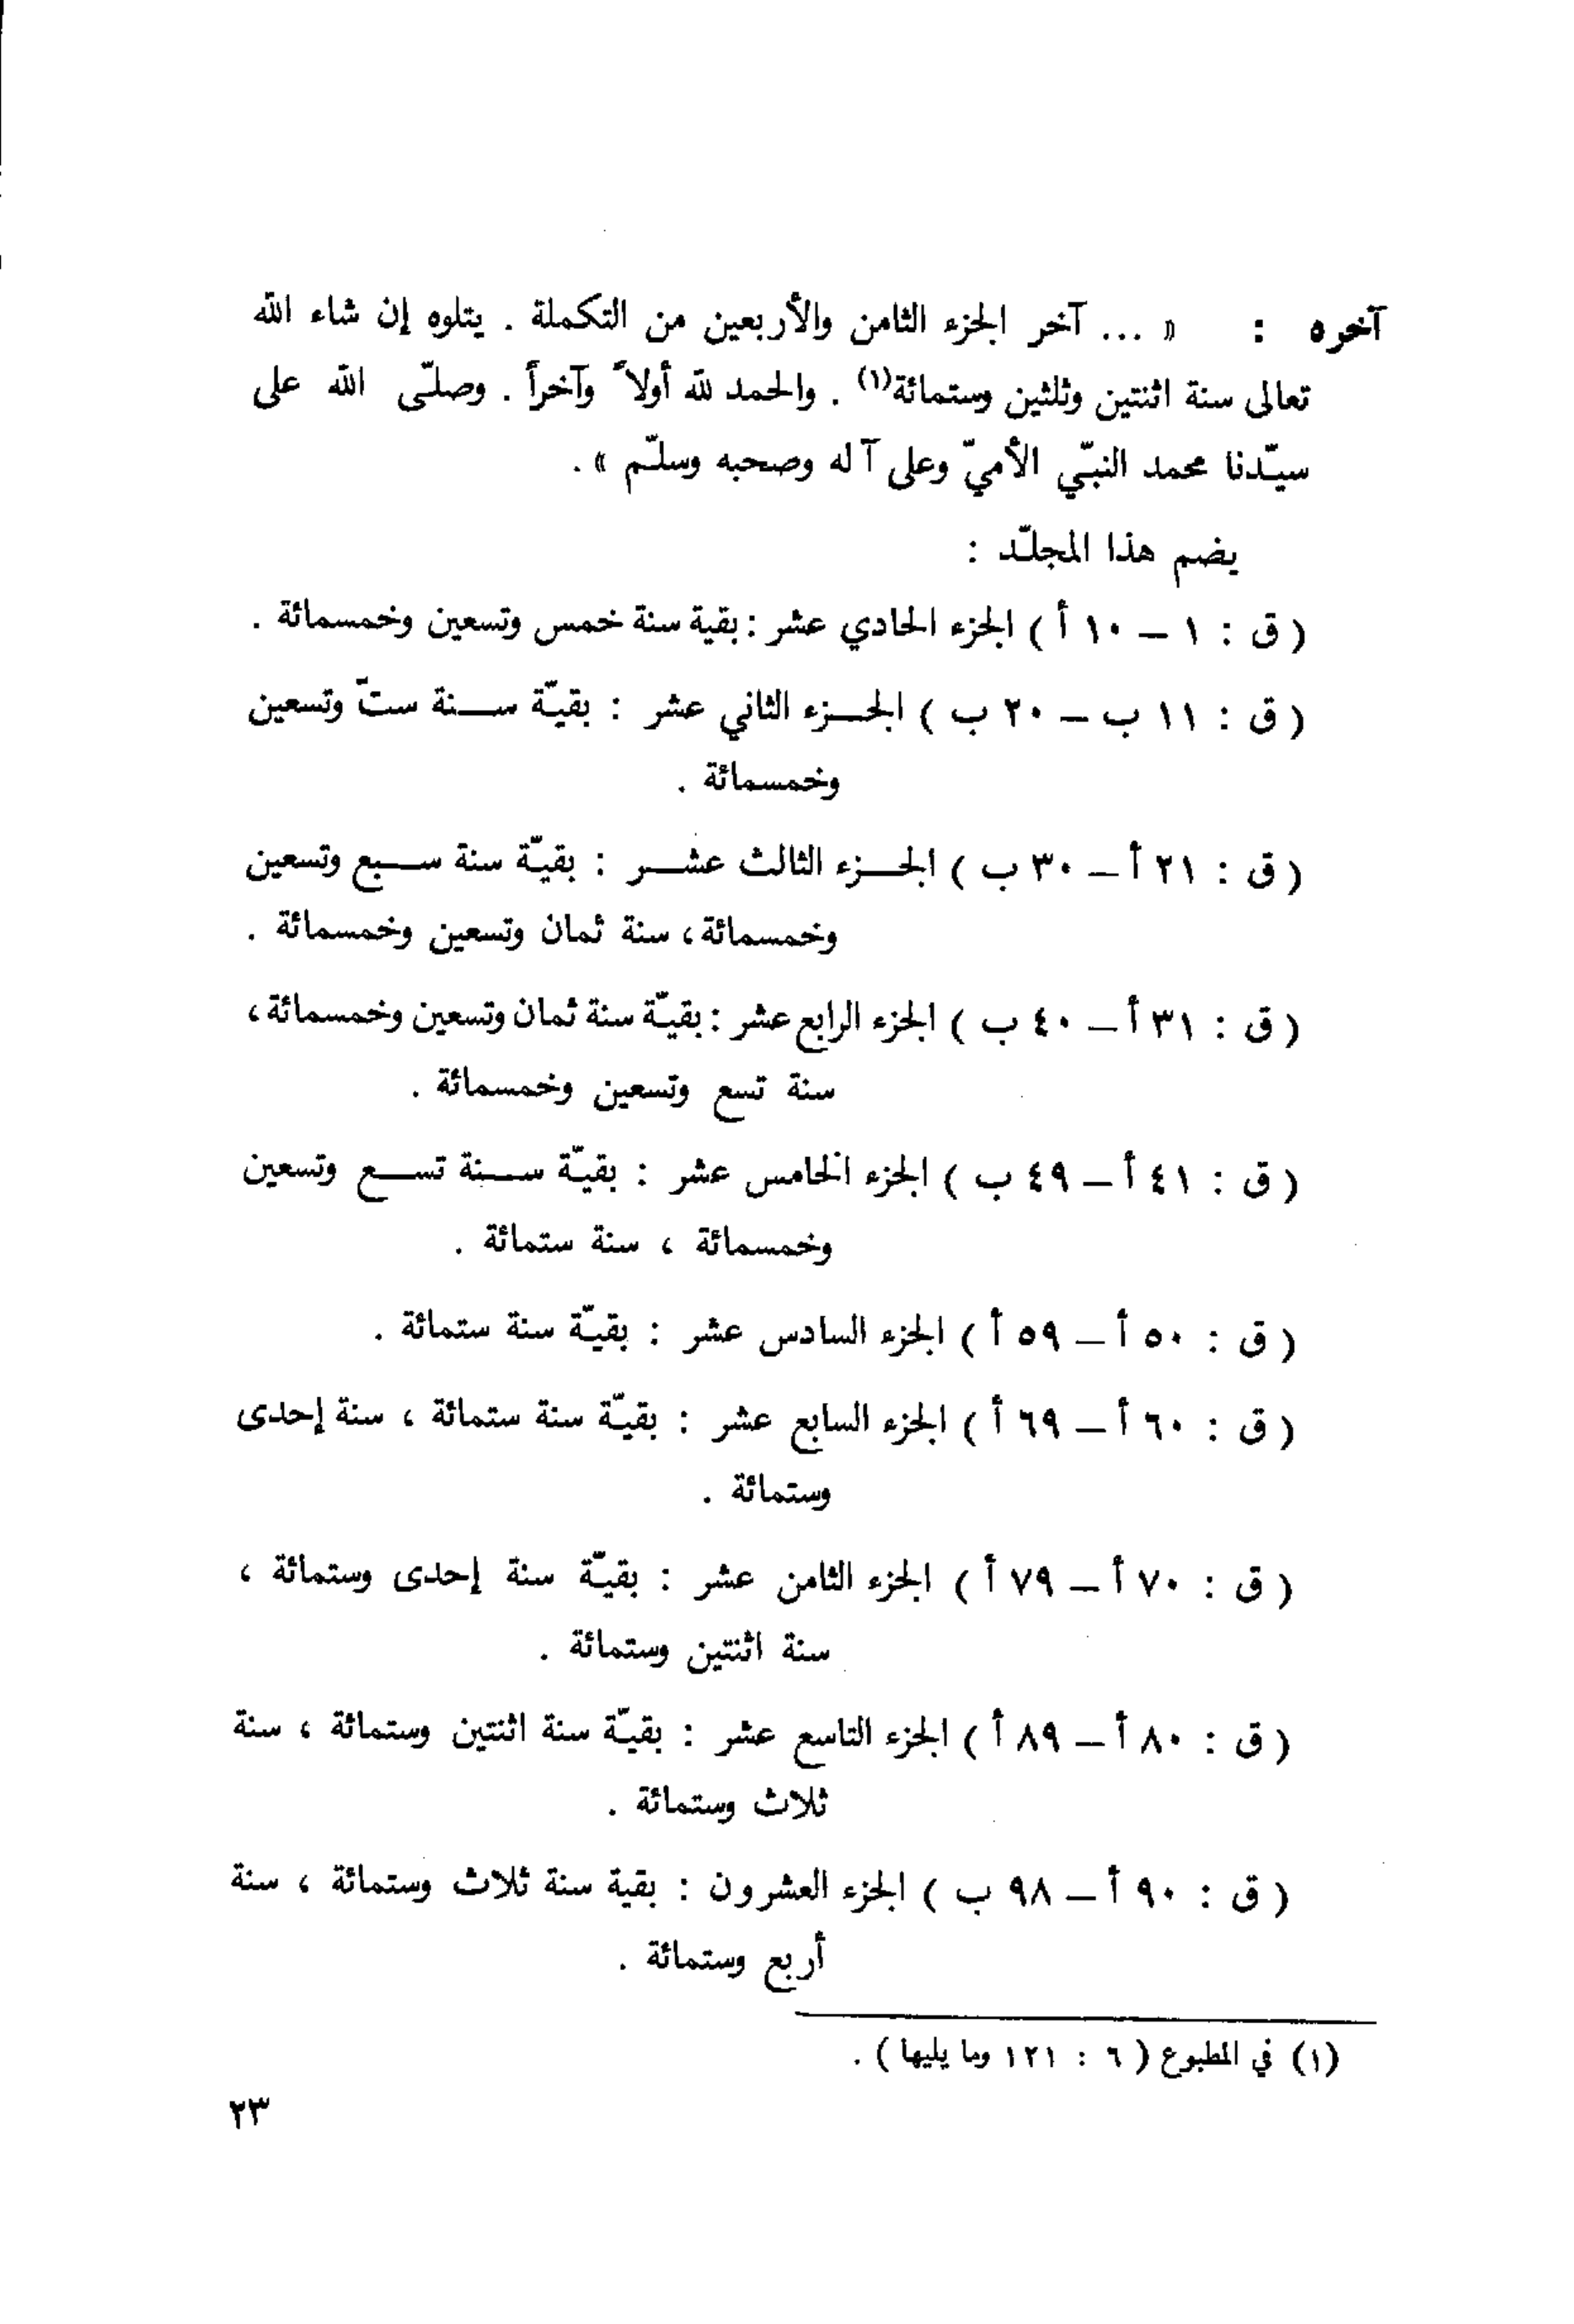 آخره : « ... آخر الجزء الثامن والأربعين من التكملة . يتلوه إن شاء الله
تعالى سنة اثنتين وثلثين وستمائة(١) . والحمد لله أولاً وآخراً . وصلّى الله على
سيّدنا محمد النبّي الأميّ وعلى آله وصحبه وسلّم » .
يضم هذا المجلّد :
( ق : ١ – ١٠ أ ) الجزء الحادي عشر : بقية سنة خمس وتسعين وخمسمائة .
( ق : ١١ ب – ٢٠ ب ) الجـزء الثاني عشر : بقيّة سـنة ستّ وتسعين
وخمسمائة .
( ق : ٢١ أ – ٣٠ ب ) الجـزء الثالث عشـر : بقيّة سنة سـبع وتسعين
وخمسمائة ، سنة ثمان وتسعين وخمسمائة .
( ق : ٣١ أ – ٤٠ ب ) الجزء الرابع عشر : بقيّة سنة ثمان وتسعين وخمسمائة ،
سنة تسع وتسعين وخمسمائة .
( ق : ٤١ أ – ٤٩ ب ) الجزء الخامس عشر : بقيّة سـنة تسـع وتسعين
وخمسمائة ، سنة ستمائة .
( ق : ٥٠ أ – ٥٩ أ ) الجزء السادس عشر : بقيّة سنة ستمائة .
( ق : ٦٠ أ – ٦٩ أ ) الجزء السابع عشر : بقيّة سنة ستمائة ، سنة إحدى
وستمائة .
( ق : ٧٠ أ – ٧٩ أ ) الجزء الثامن عشر : بقيّة سنة إحدى وستمائة ،
سنة اثنتين وستمائة .
( ق : ٨٠ أ – ٨٩ أ ) الجزء التاسع عشر : بقيّة سنة اثنتين وستمائة ، سنة
ثلاث وستمائة .
( ق : ٩٠ أ – ٩٨ ب ) الجزء العشرون : بقية سنة ثلاث وستمائة ، سنة
أربع وستمائة .
(١) في المطبوع ( ٦ : ١٢١ وما يليها ) .
٢٣